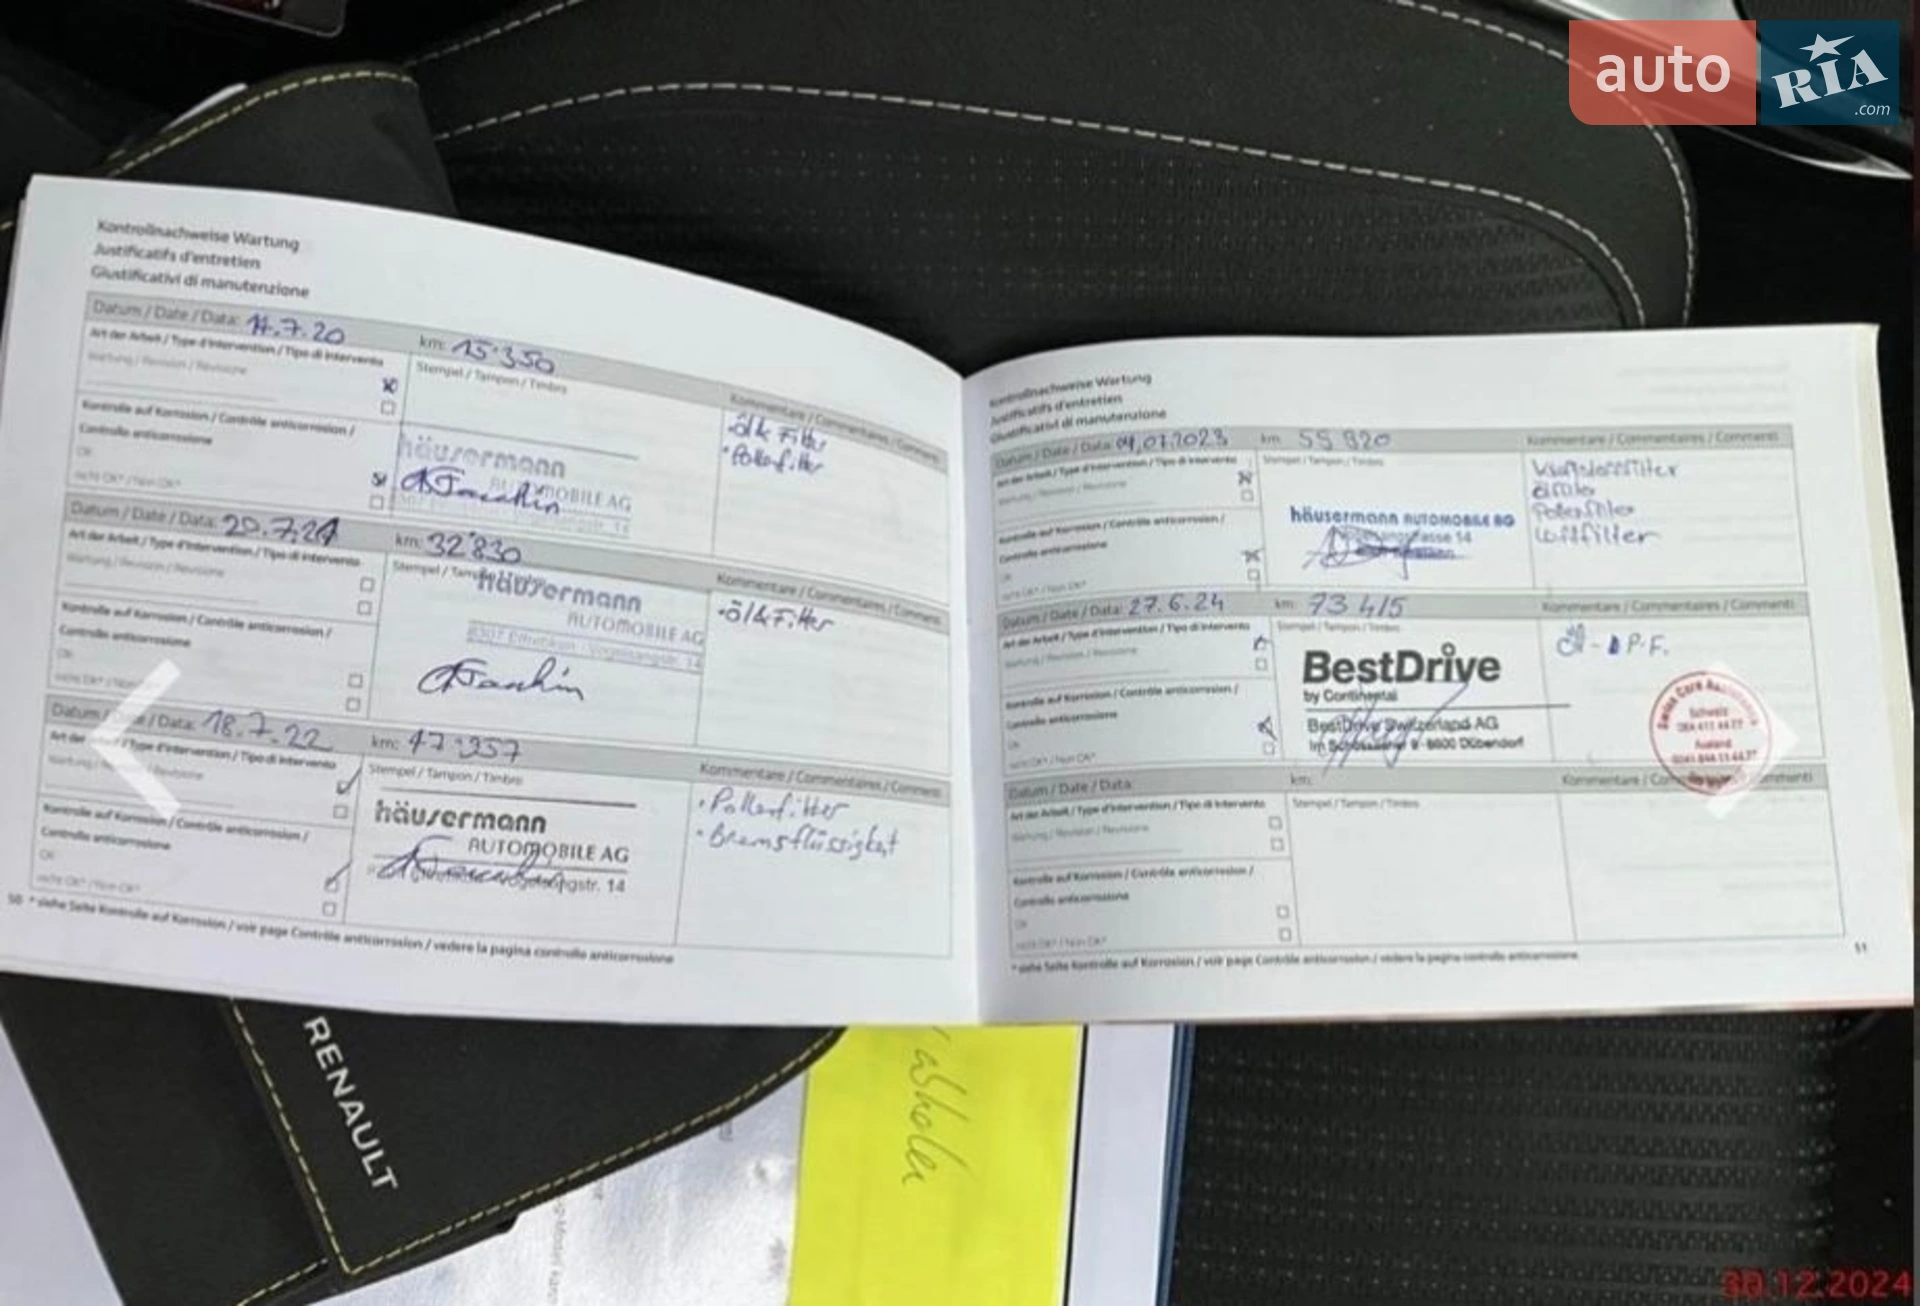 auto
RIA
.com
Kontrollnachweise Wartung
Justificatifs d'entretien
Giustificativi di manutenzione
Datum / Date / Data: 14.7.20 km: 15'350
Art der Arbeit / Type d'intervention / Tipo di intervento
Wartung / Revision / Revisione
Stempel / Tampon / Timbro
Kommentare / Commentaires / Commenti
Kontrolle auf Korrosion / Contrôle anticorrosion /
Controllo anticorrosione
OK
nicht OK* / Non OK*
häusermann
AUTOMOBILE AG
Öl & Filter
• Pollenfilter
Datum / Date / Data: 20.7.21 km: 32'830
Art der Arbeit / Type d'intervention / Tipo di intervento
Wartung / Revision / Revisione
Stempel / Tampon / Timbro
Kommentare / Commentaires / Commenti
Kontrolle auf Korrosion / Contrôle anticorrosion /
Controllo anticorrosione
OK
nicht OK* / Non OK*
häusermann
AUTOMOBILE AG
8307 Effretikon · Vogelsangstr. 14
• Öl & Filter
Datum / Date / Data: 18.7.22 km: 47'357
Art der Arbeit / Type d'intervention / Tipo di intervento
Wartung / Revision / Revisione
Stempel / Tampon / Timbro
Kommentare / Commentaires / Commenti
Kontrolle auf Korrosion / Contrôle anticorrosion /
Controllo anticorrosione
OK
nicht OK* / Non OK*
häusermann
AUTOMOBILE AG
gstr. 14
• Pollenfilter
• Bremsflüssigkeit
50 * siehe Seite Kontrolle auf Korrosion / voir page Contrôle anticorrosion / vedere la pagina controllo anticorrosione
Kontrollnachweise Wartung
Justificatifs d'entretien
Giustificativi di manutenzione
Datum / Date / Data: 04.07.2023 km: 55 920
Kommentare / Commentaires / Commenti
Art der Arbeit / Type d'intervention / Tipo di intervento
Wartung / Revision / Revisione
Stempel / Tampon / Timbro
Kontrolle auf Korrosion / Contrôle anticorrosion /
Controllo anticorrosione
OK
nicht OK* / Non OK*
häusermann AUTOMOBILE AG
Pollenfilter
Luftfilter
Datum / Date / Data: 27.6.24 km: 73 415
Kommentare / Commentaires / Commenti
Art der Arbeit / Type d'intervention / Tipo di intervento
Wartung / Revision / Revisione
Stempel / Tampon / Timbro
Kontrolle auf Korrosion / Contrôle anticorrosion /
Controllo anticorrosione
OK
nicht OK* / Non OK*
BestDrive
by Continental
BestDrive Switzerland AG
8600 Dübendorf
P.F.
Schweiz
Ausland
Datum / Date / Data: km:
Kommentare / Commentaires / Commenti
Art der Arbeit / Type d'intervention / Tipo di intervento
Wartung / Revision / Revisione
Stempel / Tampon / Timbro
Kontrolle auf Korrosion / Contrôle anticorrosion /
Controllo anticorrosione
OK
nicht OK* / Non OK*
* siehe Seite Kontrolle auf Korrosion / voir page Contrôle anticorrosion / vedere la pagina controllo anticorrosione
51
RENAULT
30.12.2024